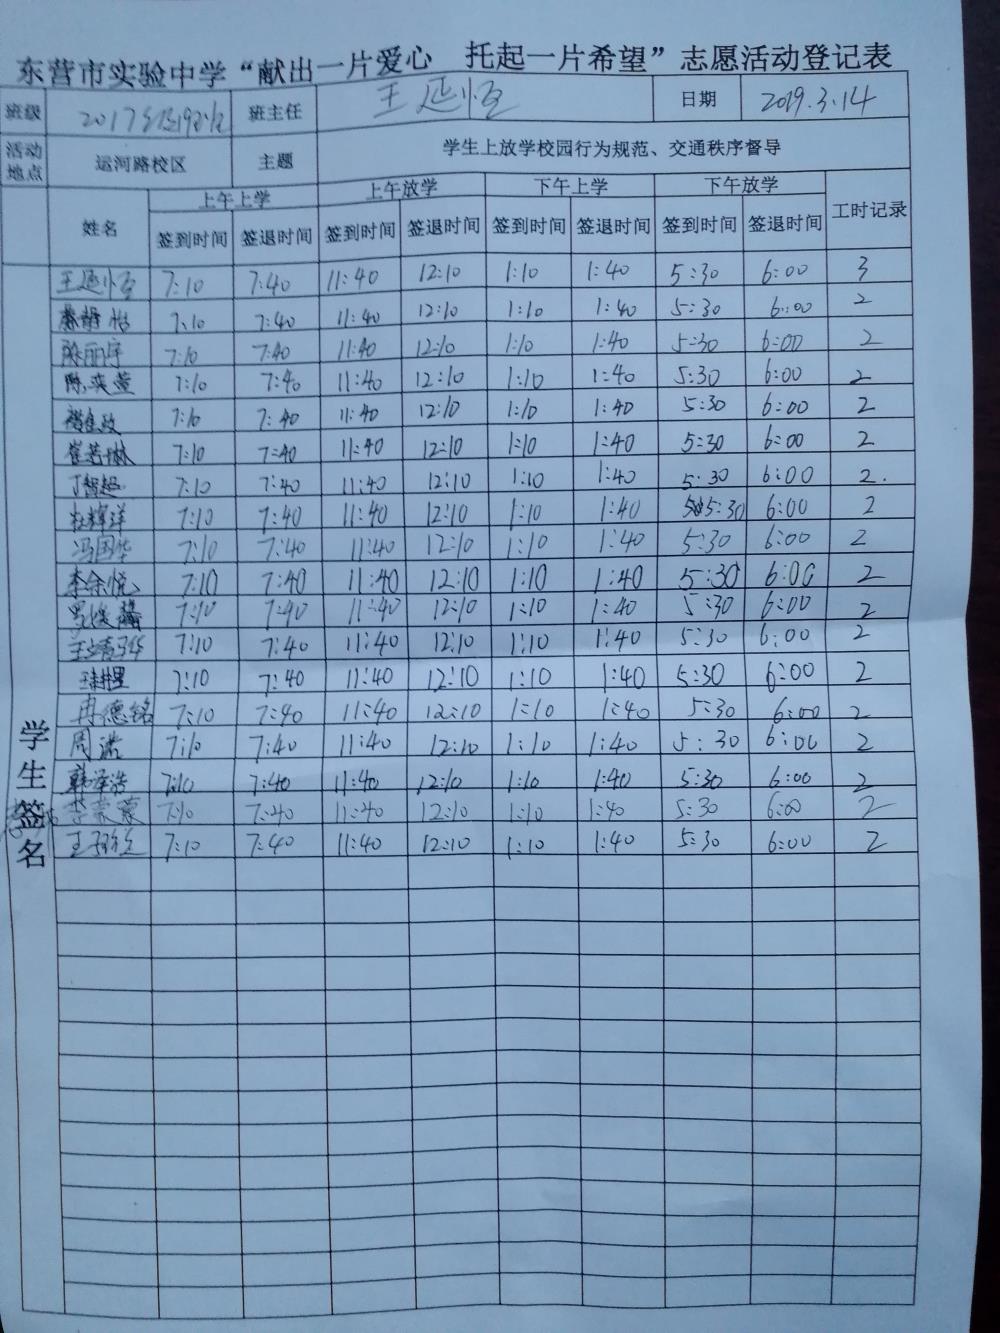 东营市实验中学“献出一片爱心 托起一片希望”志愿活动登记表
班级 2017级19班 班主任 王延恒 日期 2019.3.14
活动地点 运河路校区 主题 学生上放学校园行为规范、交通秩序督导
姓名 上午上学 上午放学 下午上学 下午放学 工时记录
签到时间 签退时间 签到时间 签退时间 签到时间 签退时间 签到时间 签退时间
学生签名
王延恒 7:10 7:40 11:40 12:10 1:10 1:40 5:30 6:00 3
7:10 7:40 11:40 12:10 1:10 1:40 5:30 6:00 2
陈丽宇 7:10 7:40 11:40 12:10 1:10 1:40 5:30 6:00 2
陈奕萱 7:10 7:40 11:40 12:10 1:10 1:40 5:30 6:00 2
7:10 7:40 11:40 12:10 1:10 1:40 5:30 6:00 2
崔若琳 7:10 7:40 11:40 12:10 1:10 1:40 5:30 6:00 2
丁智超 7:10 7:40 11:40 12:10 1:10 1:40 5:30 6:00 2.
杜辉洋 7:10 7:40 11:40 12:10 1:10 1:40 5:30 6:00 2
冯国华 7:10 7:40 11:40 12:10 1:10 1:40 5:30 6:00 2
李余悦 7:10 7:40 11:40 12:10 1:10 1:40 5:30 6:00 2
7:10 7:40 11:40 12:10 1:10 1:40 5:30 6:00 2
7:10 7:40 11:40 12:10 1:10 1:40 5:30 6:00 2
7:10 7:40 11:40 12:10 1:10 1:40 5:30 6:00 2
冉德铭 7:10 7:40 11:40 12:10 1:10 1:40 5:30 6:00 2
周洪 7:10 7:40 11:40 12:10 1:10 1:40 5:30 6:00 2
韩泽浩 7:10 7:40 11:40 12:10 1:10 1:40 5:30 6:00 2
李蒙蒙 7:10 7:40 11:40 12:10 1:10 1:40 5:30 6:00 2
7:10 7:40 11:40 12:10 1:10 1:40 5:30 6:00 2